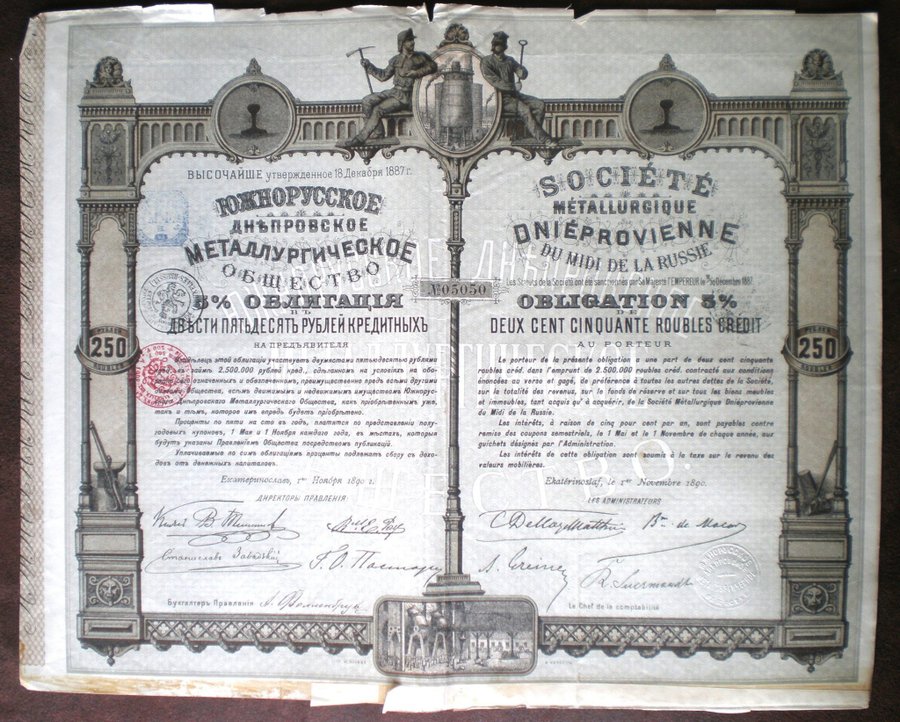 ВЫСОЧАЙШЕ утвержденное 18 Декабря 1887 г.
ЮЖНОРУССКОЕ
ДНѢПРОВСКОЕ
МЕТАЛЛУРГИЧЕСКОЕ
ОБЩЕСТВО
5% ОБЛИГАЦІЯ
ВЪ
ДВѢСТИ ПЯТЬДЕСЯТЪ РУБЛЕЙ КРЕДИТНЫХЪ
НА ПРЕДЪЯВИТЕЛЯ
250
этой облигаціи участвуетъ двумястами пятьюдесятью рублями
въ займѣ 2.500.000 рублей кред., сдѣланномъ на условіяхъ на обо-
означенныхъ и обозначенномъ, преимущественно предъ всѣми другими
Общества, всѣмъ движимымъ и недвижимымъ имуществомъ Южнорус-
Днѣпровскаго Металлургическаго Общества, какъ пріобрѣтеннымъ уже,
такъ и тѣмъ, которое имъ впредь будетъ пріобрѣтено.
Проценты по пяти на сто въ годъ, платятся по представленіи полу-
годовыхъ купоновъ, 1 Мая и 1 Ноября каждаго года, въ мѣстахъ, которыя
будутъ указаны Правленіемъ Общества посредствомъ публикацій.
Уплачиваемые по симъ облигаціямъ проценты подлежатъ сбору съ дохо-
довъ отъ денежныхъ капиталовъ.
Екатеринославъ, 1го Ноября 1890 г.
ДИРЕКТОРЫ ПРАВЛЕНІЯ:
Станиславъ
Бухгалтеръ Правленія
№05050
SOCIÉTÉ
MÉTALLURGIQUE
DNIÉPROVIENNE
DU MIDI DE LA RUSSIE
Les Statuts de la Société ont été sanctionnés par Sa Majesté l'EMPEREUR le 18/30 Décembre 1887.
OBLIGATION 5%
DE
DEUX CENT CINQUANTE ROUBLES CRÉDIT
AU PORTEUR
250
Le porteur de la présente obligation a une part de deux cent cinquante
roubles créd. dans l'emprunt de 2.500.000 roubles créd. contracté aux conditions
énoncées au verso et gagé, de préférence à toutes les autres dettes de la Société,
sur la totalité des revenus, sur le fonds de réserve et sur tous les biens meubles
et immeubles, tant acquis qu'à acquérir, de la Société Métallurgique Dniéprovienne
du Midi de la Russie.
Les intérêts, à raison de cinq pour cent par an, sont payables contre
remise des coupons semestriels, le 1 Mai et le 1 Novembre de chaque année, aux
guichets désignés par l'Administration.
Les intérêts de cette obligation sont soumis à la taxe sur le revenu des
valeurs mobilières.
Ekatérinoslaf, le 1er Novembre 1890.
LES ADMINISTRATEURS
Le Chef de la comptabilité